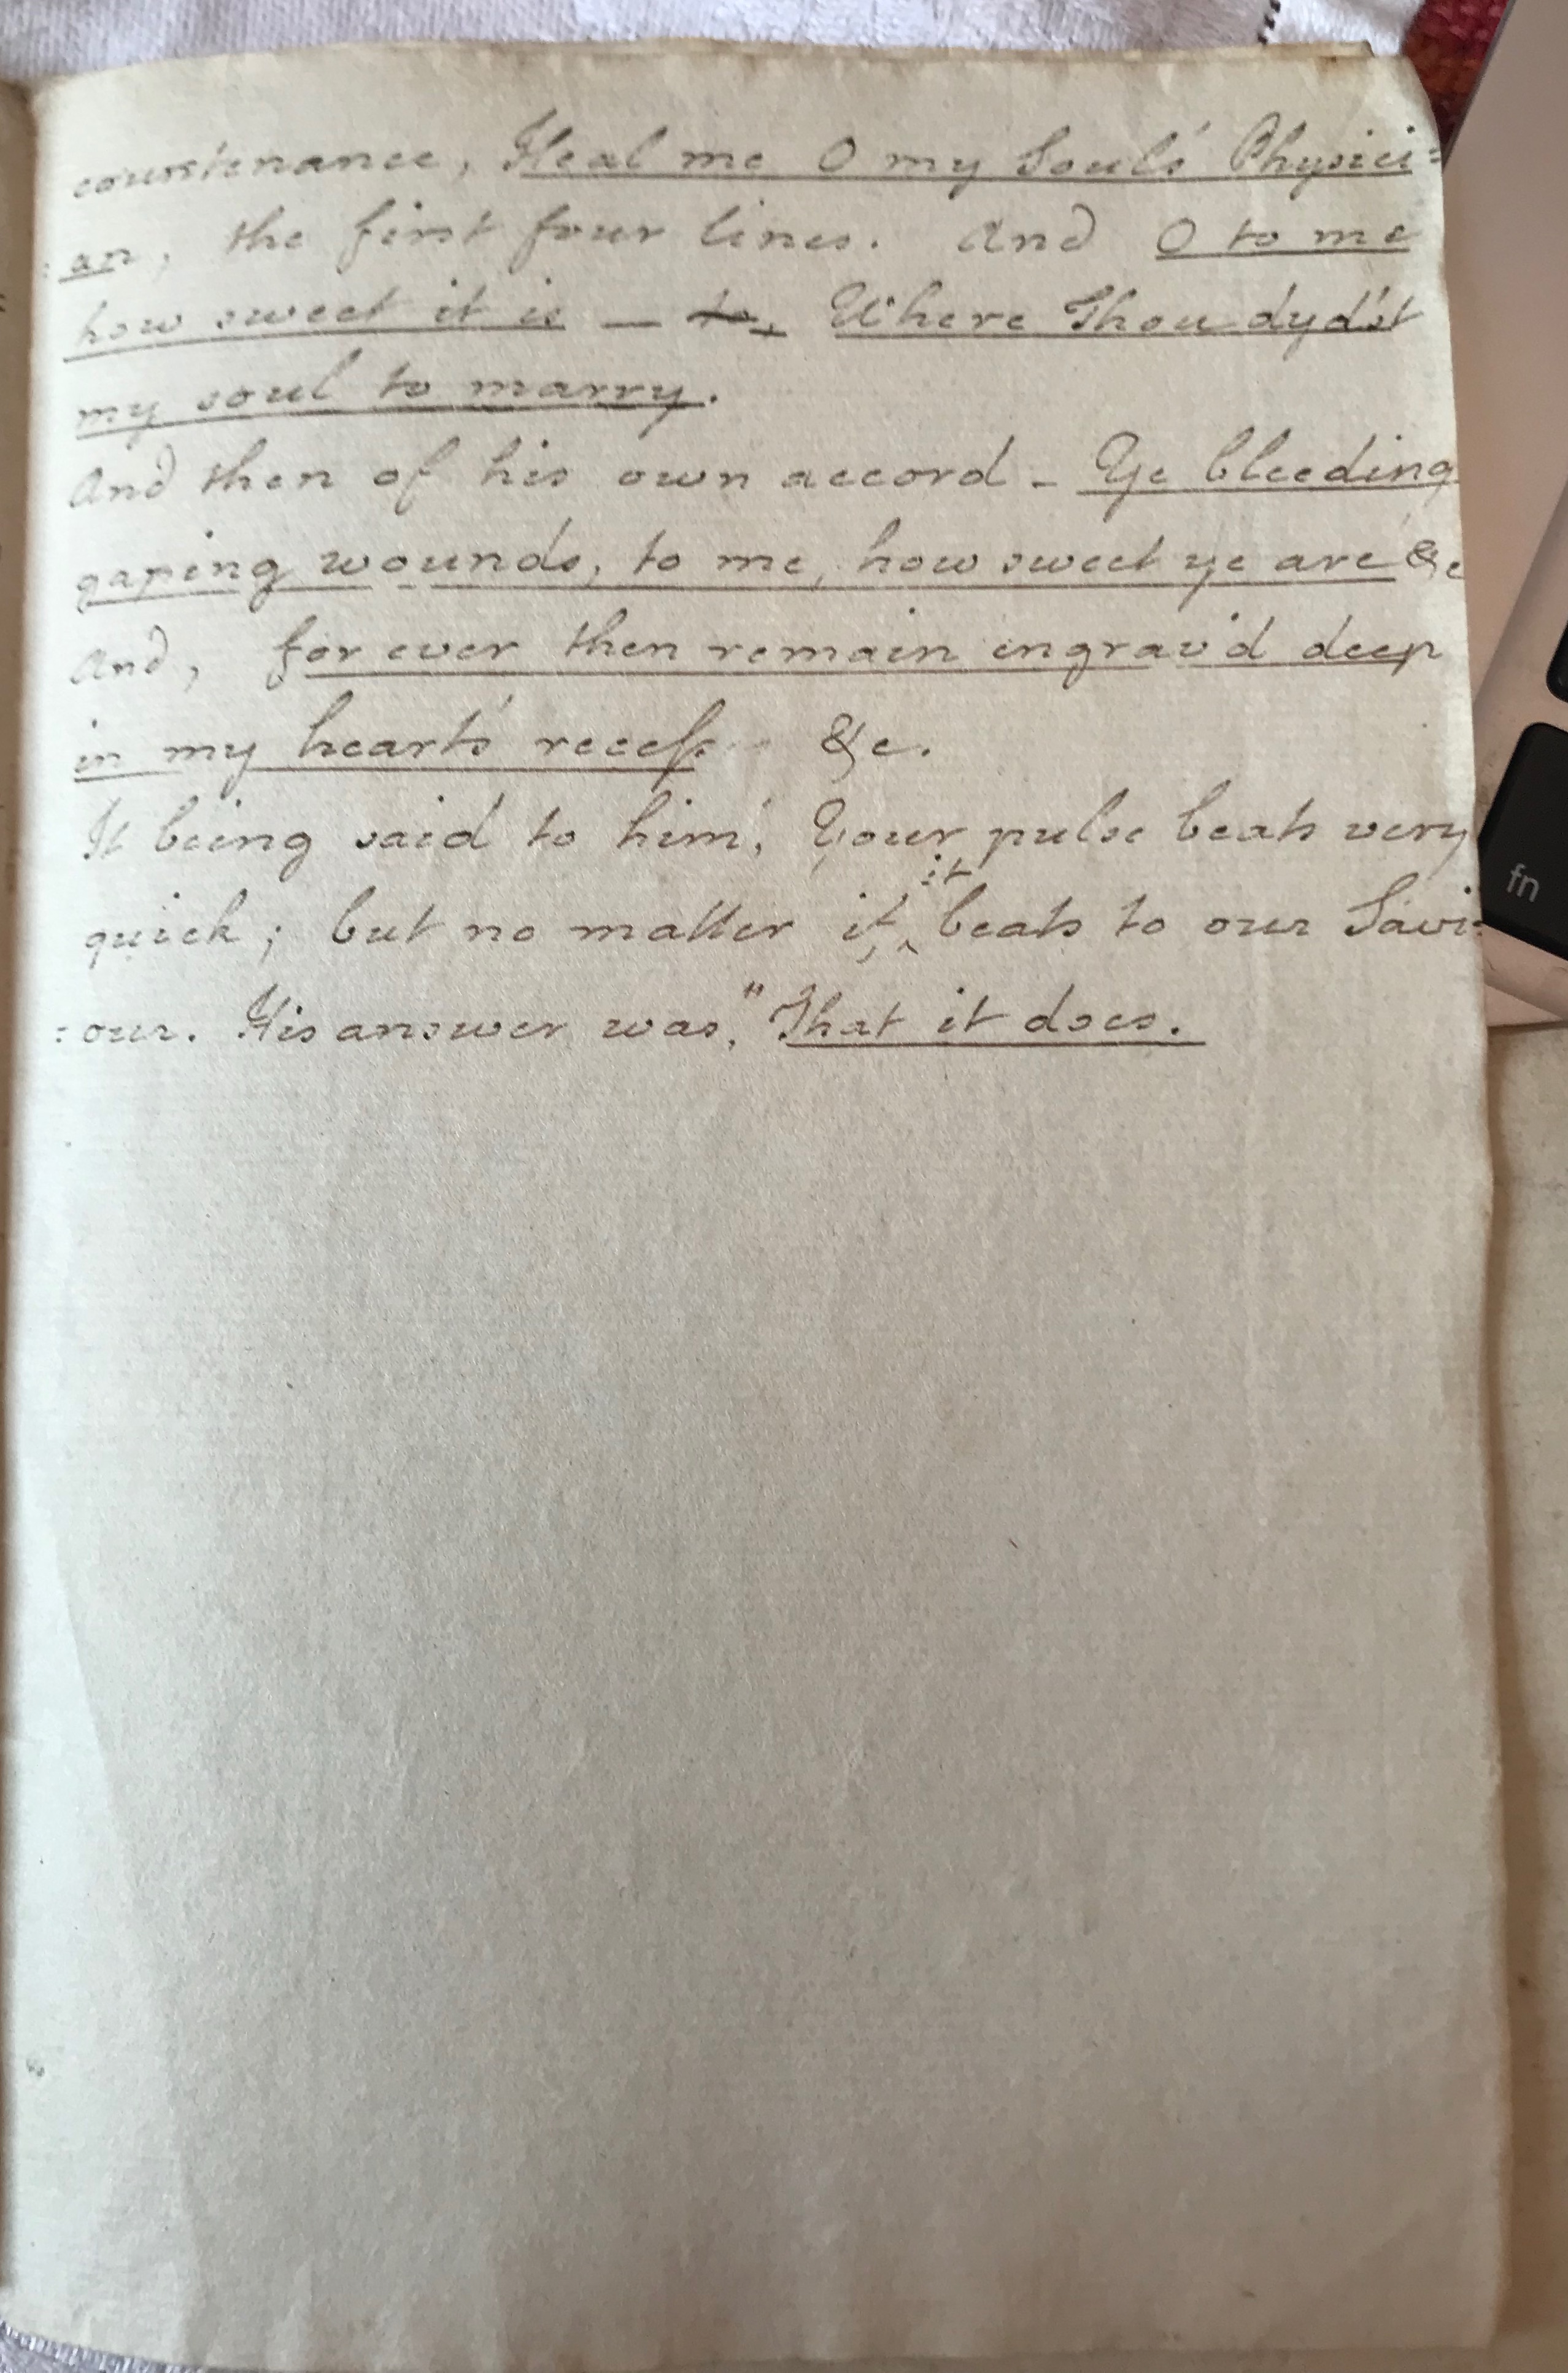 countenance, Heal me O my Soul's Physici=
=an, the first four lines. And O to me
how sweet it is — to, Where Thou dyd'st
my soul to marry.
And then of his own accord - Ye bleeding
gaping wounds, to me, how sweet ye are &c
And, for ever then remain ingrav'd deep
in my heart's recess &c.
It being said to him, Your pulse beats very
quick; but no matter if, it beats to our Savi=
=our. His answer was, "That it does.
fn